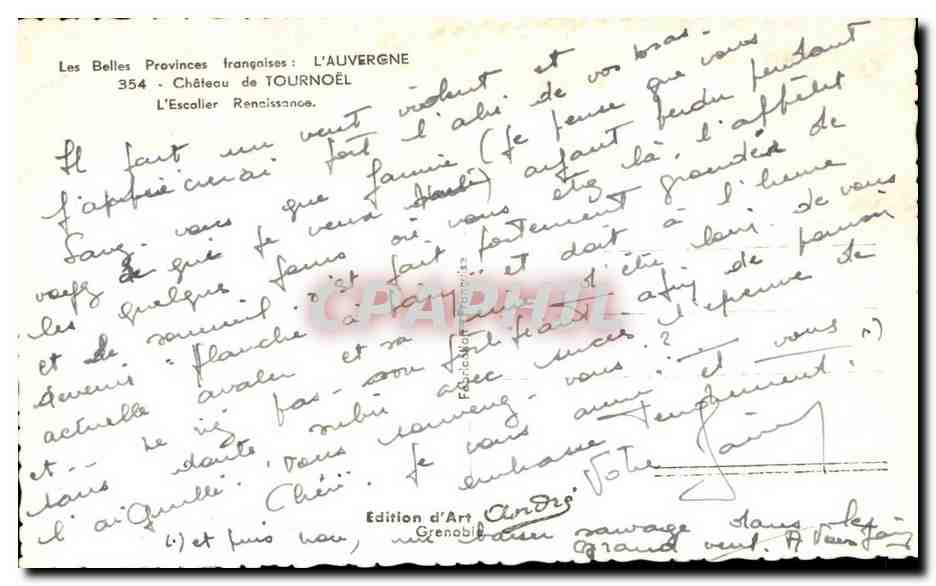 Les Belles Provinces françaises : L'AUVERGNE
354 - Château de TOURNOËL
L'Escalier Renaissance.
Il fait un vent violent et
j'apprécierai fort l'abri de vos bras.
Savez-vous que Jamie (je pense que vous
voyez de qui je veux parler) ayant perdu pendant
les quelques jours où vous étiez là, l'appétit
et le sommeil s'est fait fortement gronder de
devenir "planche à pain" et doit à l'heure
actuelle avaler et sa peine d'être loin de vous
et -- le vez pas - son fortifiant afin de pouvoir
sans doute subir avec succès l'épreuve de
l'aiguille, vous souvenez-vous ?
Chéri. Je vous aime et vous (.)
embrasse tendrement.
Votre
CPARPHIL
Fabrication Française
Edition d'Art André
Grenoble
(.) et puis non, un baiser sauvage dans le
grand vent. A Vous